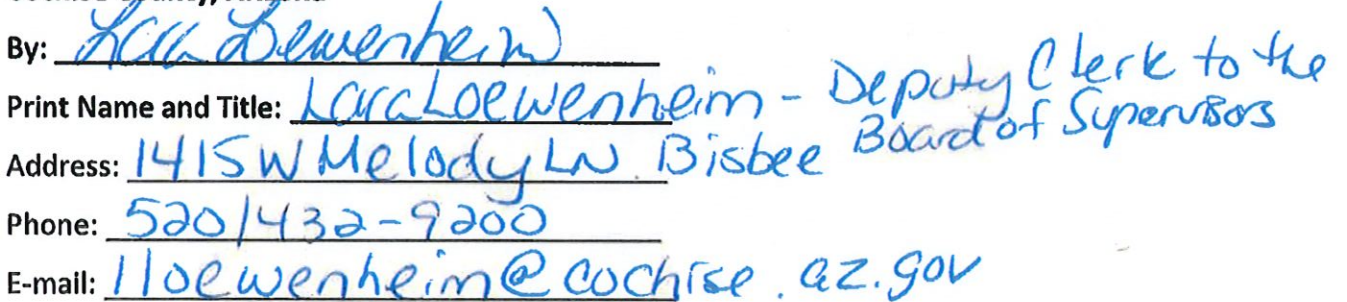 By: Lara Loewenheim
Print Name and Title: Lara Loewenheim - Deputy Clerk to the
Board of Supervisors
Address: 1415 W Melody LN. Bisbee
Phone: 520/432-9200
E-mail: lloewenheim@cochise.az.gov